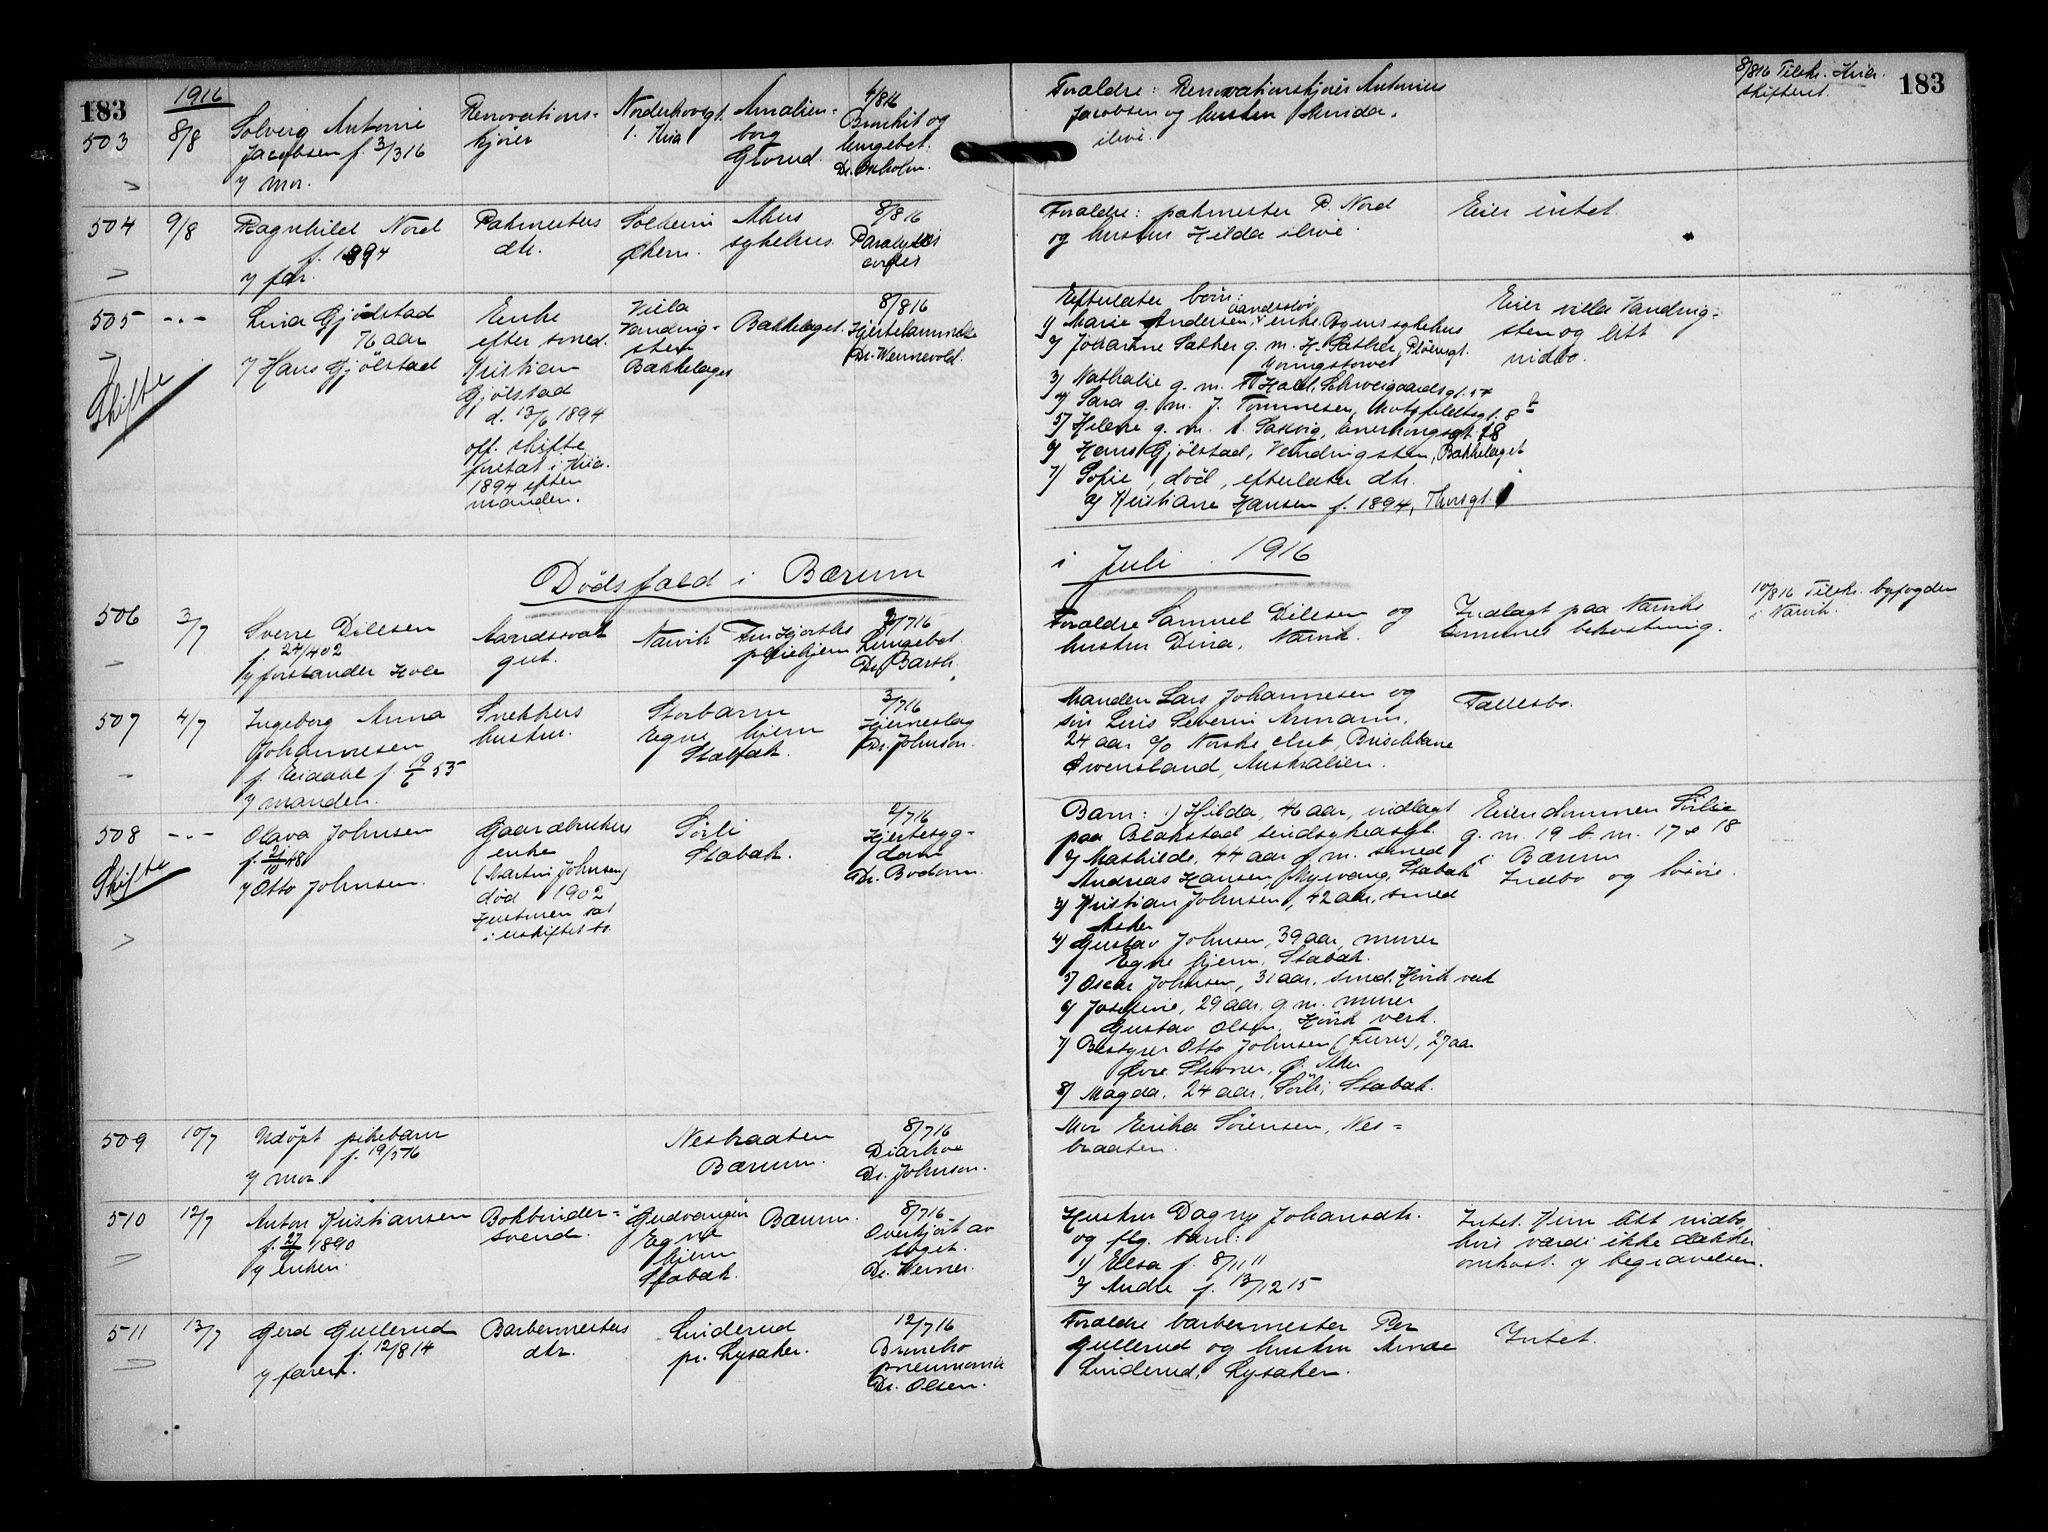 183
1916
503
8/8
Solveig Antonie
Jacobsen f. 3/3 16
v/ mor.
Renovations-
kjører
Norderhovsgt.
1. Kria
Amalien-
borg
Grorud
4/8 16
Bronkit og
lungebet.
Foraldre: Renovationskjører Antonius
Jacobsen og hustru
ilive.
8/8 16 Tilskr. Kria.
skifteret.
183
504
9/8
Ragnhild Nord
f. 1894
v/ far.
Pakmesters
dtr.
Solheim
Akers
sykehus.
8/8 16
Paralysis
cordis
Foraldre: pakmester P. Nord
og hustru Hilda ilive.
Eier intet.
505
-"-
Lina Gjølstad
76 aar
v/ Hans Gjølstad
Skifte
Enke
efter smed.
Kristian
Gjølstad
d. 13/6 1894
off. skifte
foretat i Kria.
1894 efter
manden.
Villa
Vandrings-
sten
Bakkelaget
Bakkelaget.
8/8 16
Hjertelammelse
Dr. Wennevold.
Efterlater barn:
1) Marie Andersen, enke. Byens sykehus
2) Johanne Sæther g. m. H. Sæther, Pløensgt.
Youngstorvet
3) Nathalie g. m. Hall, Schweigaardsgt. 54
4) Sara g. m. J. Tommesen, Motzfeldtsgt. 8 b
5) Helene g. m. , Enerhaugsgt. 18
6) Hans Gjølstad, Vandringsten, Bakkelaget
7) Sofie, død, efterlater dtr.
a) Kristiane Hansen f. 1894, Thorsgt.
Eier villa Vandring-
sten og litt
indbo.
Dødsfald i Bærum
i Juli 1916
506
3/7
Sverre Dilesen
f. 24/4 02
v/ forstander Hole
Aandssvak
gut.
Narvik
Fru Hjorths
pleiehjem
2/7 16
Lungebet.
Dr. Barth.
Foraldre Samuel Dilesen og
hustru Dina, Narvik.
Indlagt paa Narviks
kommunes bekostning.
10/8 16 Tilskr. byfogden
i Narvik.
507
4/7
Ingeborg Anna
Johannesen
f. Eidahl f. 19/6 55
v/ manden.
Snekkers
hustru.
Storbarm
Egne hjem
Stabæk.
3/7 16
Hjerneslag
Dr. Johnson.
Manden Lars Johannesen og
søn Luis Severin Armann,
24 aar c/o Norske club, Brischbane
Qwensland, Australien.
Fællesbo.
508
-"-
Olava Johnsen
f. 21/10 48
v/ Otto Johnsen.
Skifte
Gaardbrukers
enke
(Martin Johnsen)
død 1902
Hustruen sat
i uskiftet bo.
Sørli
Stabæk.
2/7 16
Hjertesyg-
dom
Dr. Bodom.
Barn: 1) Hilda, 46 aar, indlagt
paa Blakstad sindsykeasyl.
2) Mathilde, 44 aar g. m. smed
Andreas Hansen, Myrvang, Stabæk
3) Kristian Johnsen, 42 aar, smed
Asker
4) Gustav Johnsen, 39 aar, murer
Egne hjem, Stabæk.
5) Oscar Johnsen, 31 aar, smed, Høvik verk
6) Josefine, 29 aar, g. m. murer
Gustav Olsen, Høvik verk.
7) Bestyrer Otto Johnsen (Furu), 27 aar
Øvre Stovner, Ø. Aker
8) Magda, 24 aar, Sørli, Stabæk.
Eiendommen Sørlie
g. nr. 19 b. nr. 17 & 18
i Bærum
Indbo og løsøre.
509
10/7
Udøpt pikebarn
f. 19/5 16
v/ mor.
Nesbraaten
Bærum.
8/7 16
Diarhoe
Dr. Johnson.
Mor Erika Sørensen, Nes-
braaten.
510
12/7
Anton Kristiansen
f. 27/9 1890
v/ enken.
Bokbinder-
svend.
Gudvangen
Egne
hjem
Stabæk.
Bærum.
8/7 16
Overkjørt av
toget.
Dr. Werner.
Hustru Dagny Johansdtr.
og flg. barn:
1) Elsa f. 8/11 11
2) Andre f. 13/12 15
Intet. Kun litt indbo,
hvis værdi ikke dækker
omkost. v/ begravelsen.
511
13/7
Gerd Gullerud
f. 12/8 14
v/ faren.
Barbermesters
dtr.
Linderud
pr. Lysaker.
12/7 16
Broncho
pneumonia
Dr. Olsen.
Foraldre barbermester Per
Gullerud og hustru
Linderud, Lysaker.
Intet.